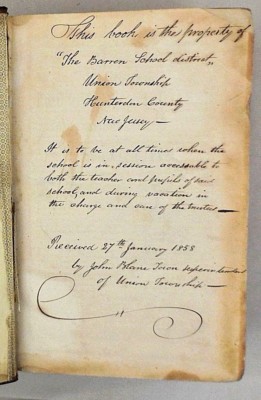 This book is the property of
"The Barren School district"
Union Township
Hunterdon County
New Jersey —
It is to be at all times when the
school is in session accessable to
both the teacher and pupils of said
school, and during vacation in
the charge and care of the trustees —
Received 27th January 1858
by John Blane Town superintendent
of Union Township —